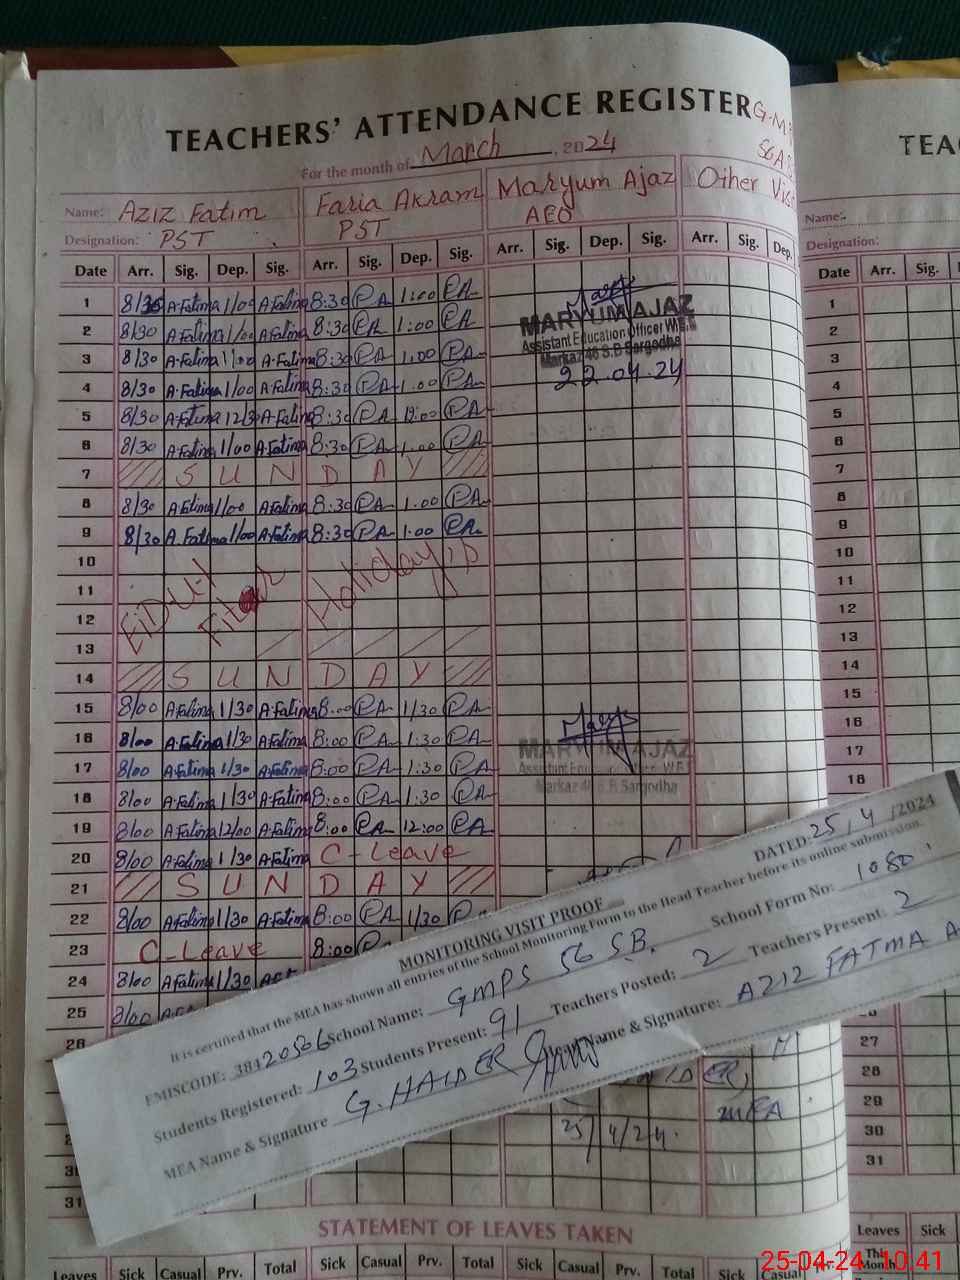 TEACHERS' ATTENDANCE REGISTER
G-M
For the month of March, 2024
Name: AZIZ Fatim
Faria Akram
Maryum Ajaz
Other
Designation: PST
PST
AEO
Date Arr. Sig. Dep. Sig. Arr. Sig. Dep. Sig. Arr. Sig. Dep. Sig. Arr. Sig. Dep.
1 8/30 A.Fatima 1/00 A.Fatima 8:30 1:00
2 8/30 A.Fatima 1/00 A.Fatima 8:30 1:00
3 8/30 A.Fatima 1/00 A.Fatima 8:30 1:00
4 8/30 A.Fatima 1/00 A.Fatima 8:30 1:00
5 8/30 A.Fatima A.Fatima 8:30
6 8/30 A.Fatima 1/00 A.Fatima 8:30 1:00
7 SUNDAY
8 8/30 A.Fatima 1/00 A.Fatima 8:30 1:00
9 8/30 A.Fatima 1/00 A.Fatima 8:30 1:00
10
11
12
13
14 SUNDAY
15 8/00 A.Fatima 1/30 A.Fatima 8:00 1/30
16 8/00 A.Fatima 1/30 A.Fatima 8:00 1:30
17 8/00 A.Fatima 1/30 A.Fatima 8:00 1:30
18 8/00 A.Fatima 1/30 A.Fatima 8:00 1:30
19 8/00 A.Fatima 12/00 A.Fatima 8:00 12:00
20 8/00 A.Fatima 1/30 A.Fatima C-Leave
21 SUNDAY
22 8/00 A.Fatima 1/30 A.Fatima 8:00 1/30
23 C-Leave 8:00
24 8/00 A.Fatima 1/30
25 8/00
26
31
MARYUM AJAZ
Assistant Education Officer W.E.E
Markaz 46 S.B Sargodha
22.04.24
MARYUM AJAZ
Markaz 46 S.B Sargodha
DATED: 25/4/2024
MONITORING VISIT PROOF
It is certified that the MEA has shown all entries of the School Monitoring Form to the Head Teacher before its online submission.
EMISCODE: 38420506 School Name: GMPS 56 S.B. School Form No: 1080
Students Registered: 103 Students Present: 91 Teachers Posted: 2 Teachers Present: 2
MEA Name & Signature G. HAIDER Name & Signature: AZIZ FATMA
MEA
25/4/24.
STATEMENT OF LEAVES TAKEN
Leaves Sick Casual Prv. Total Sick Casual Prv. Total Sick Casual
TEA
Name:-
Designation:
Date Arr. Sig.
1
2
3
4
5
6
7
8
9
10
11
12
13
14
15
16
17
18
27
28
29
30
31
Leaves Sick
This Month
25-04-24 10.41